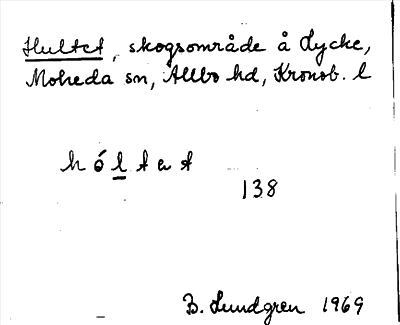 Hultet, skogsområde å Lycke,
Moheda sn, Allbo hd, Kronob. l
hóltet
138
B. Lundgren 1969